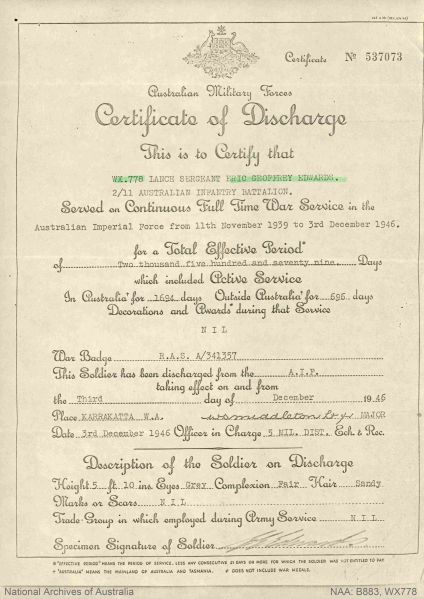 Certificate No 537073
Australian Military Forces
Certificate of Discharge
This is to Certify that
WX.778 LANCE SERGEANT ERIC GEOFFREY EDWARDS.
2/11 AUSTRALIAN INFANTRY BATTALION.
Served on Continuous Full Time War Service in the
Australian Imperial Force from 11th November 1939 to 3rd December 1946.
for a Total Effective Period*
of Two thousand five hundred and seventy nine. Days
which included Active Service
In Australia† for 1694 days Outside Australia† for 696 days
Decorations and Awards# during that Service
NIL
War Badge R.A.S. A/341357
This Soldier has been discharged from the A.I.F.
taking effect on and from
the Third day of December 1946
Place KARRAKATTA W.A. MAJOR
Date 3rd December 1946 Officer in Charge 5 MIL. DIST. Ech. & Rec.
Description of the Soldier on Discharge
Height 5 ft 10 ins Eyes Grey Complexion Fair Hair Sandy
Marks or Scars NIL
Trade Group in which employed during Army Service NIL
Specimen Signature of Soldier
* "EFFECTIVE PERIOD" MEANS THE PERIOD OF SERVICE, LESS ANY CONSECUTIVE 21 DAYS OR MORE FOR WHICH THE SOLDIER WAS NOT ENTITLED TO PAY
† "AUSTRALIA" MEANS THE MAINLAND OF AUSTRALIA AND TASMANIA. # DOES NOT INCLUDE WAR MEDALS.
National Archives of Australia NAA: B883, WX778